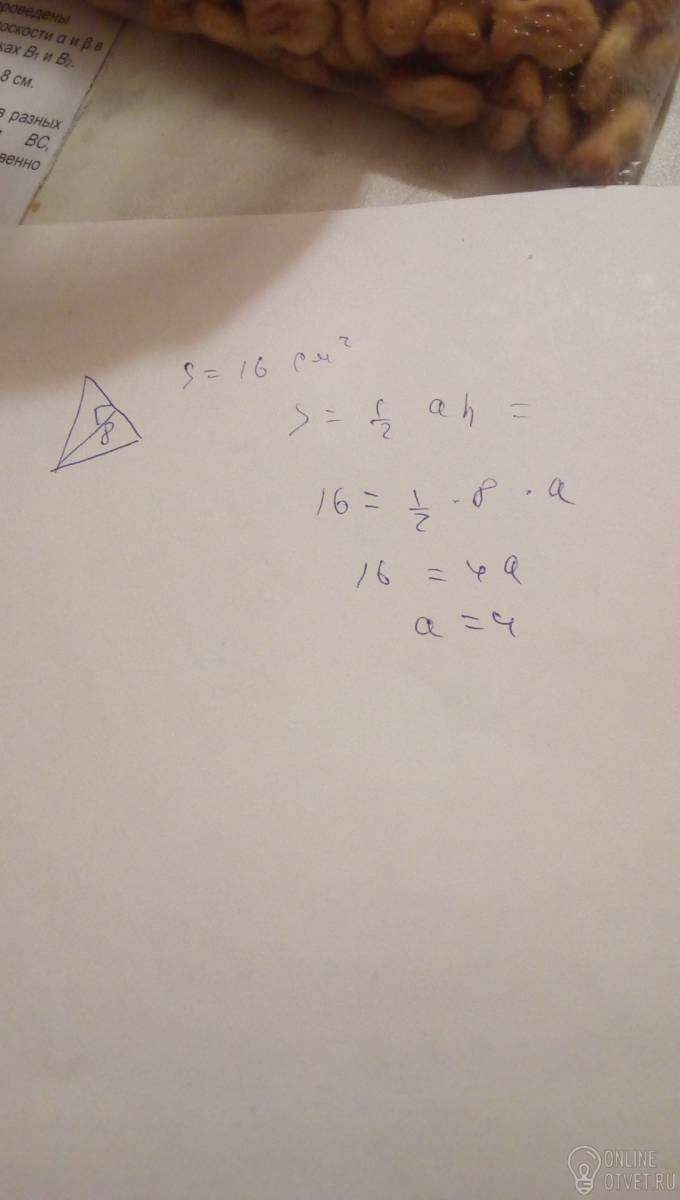 роведены
оскости α и β в
ках B₁ и B₂.
8 см.
в разных
BC,
венно
S = 16 см²
8
S = 1/2 ah =
16 = 1/2 · 8 · a
16 = 4a
a = 4
ONLINE
OTVET.RU